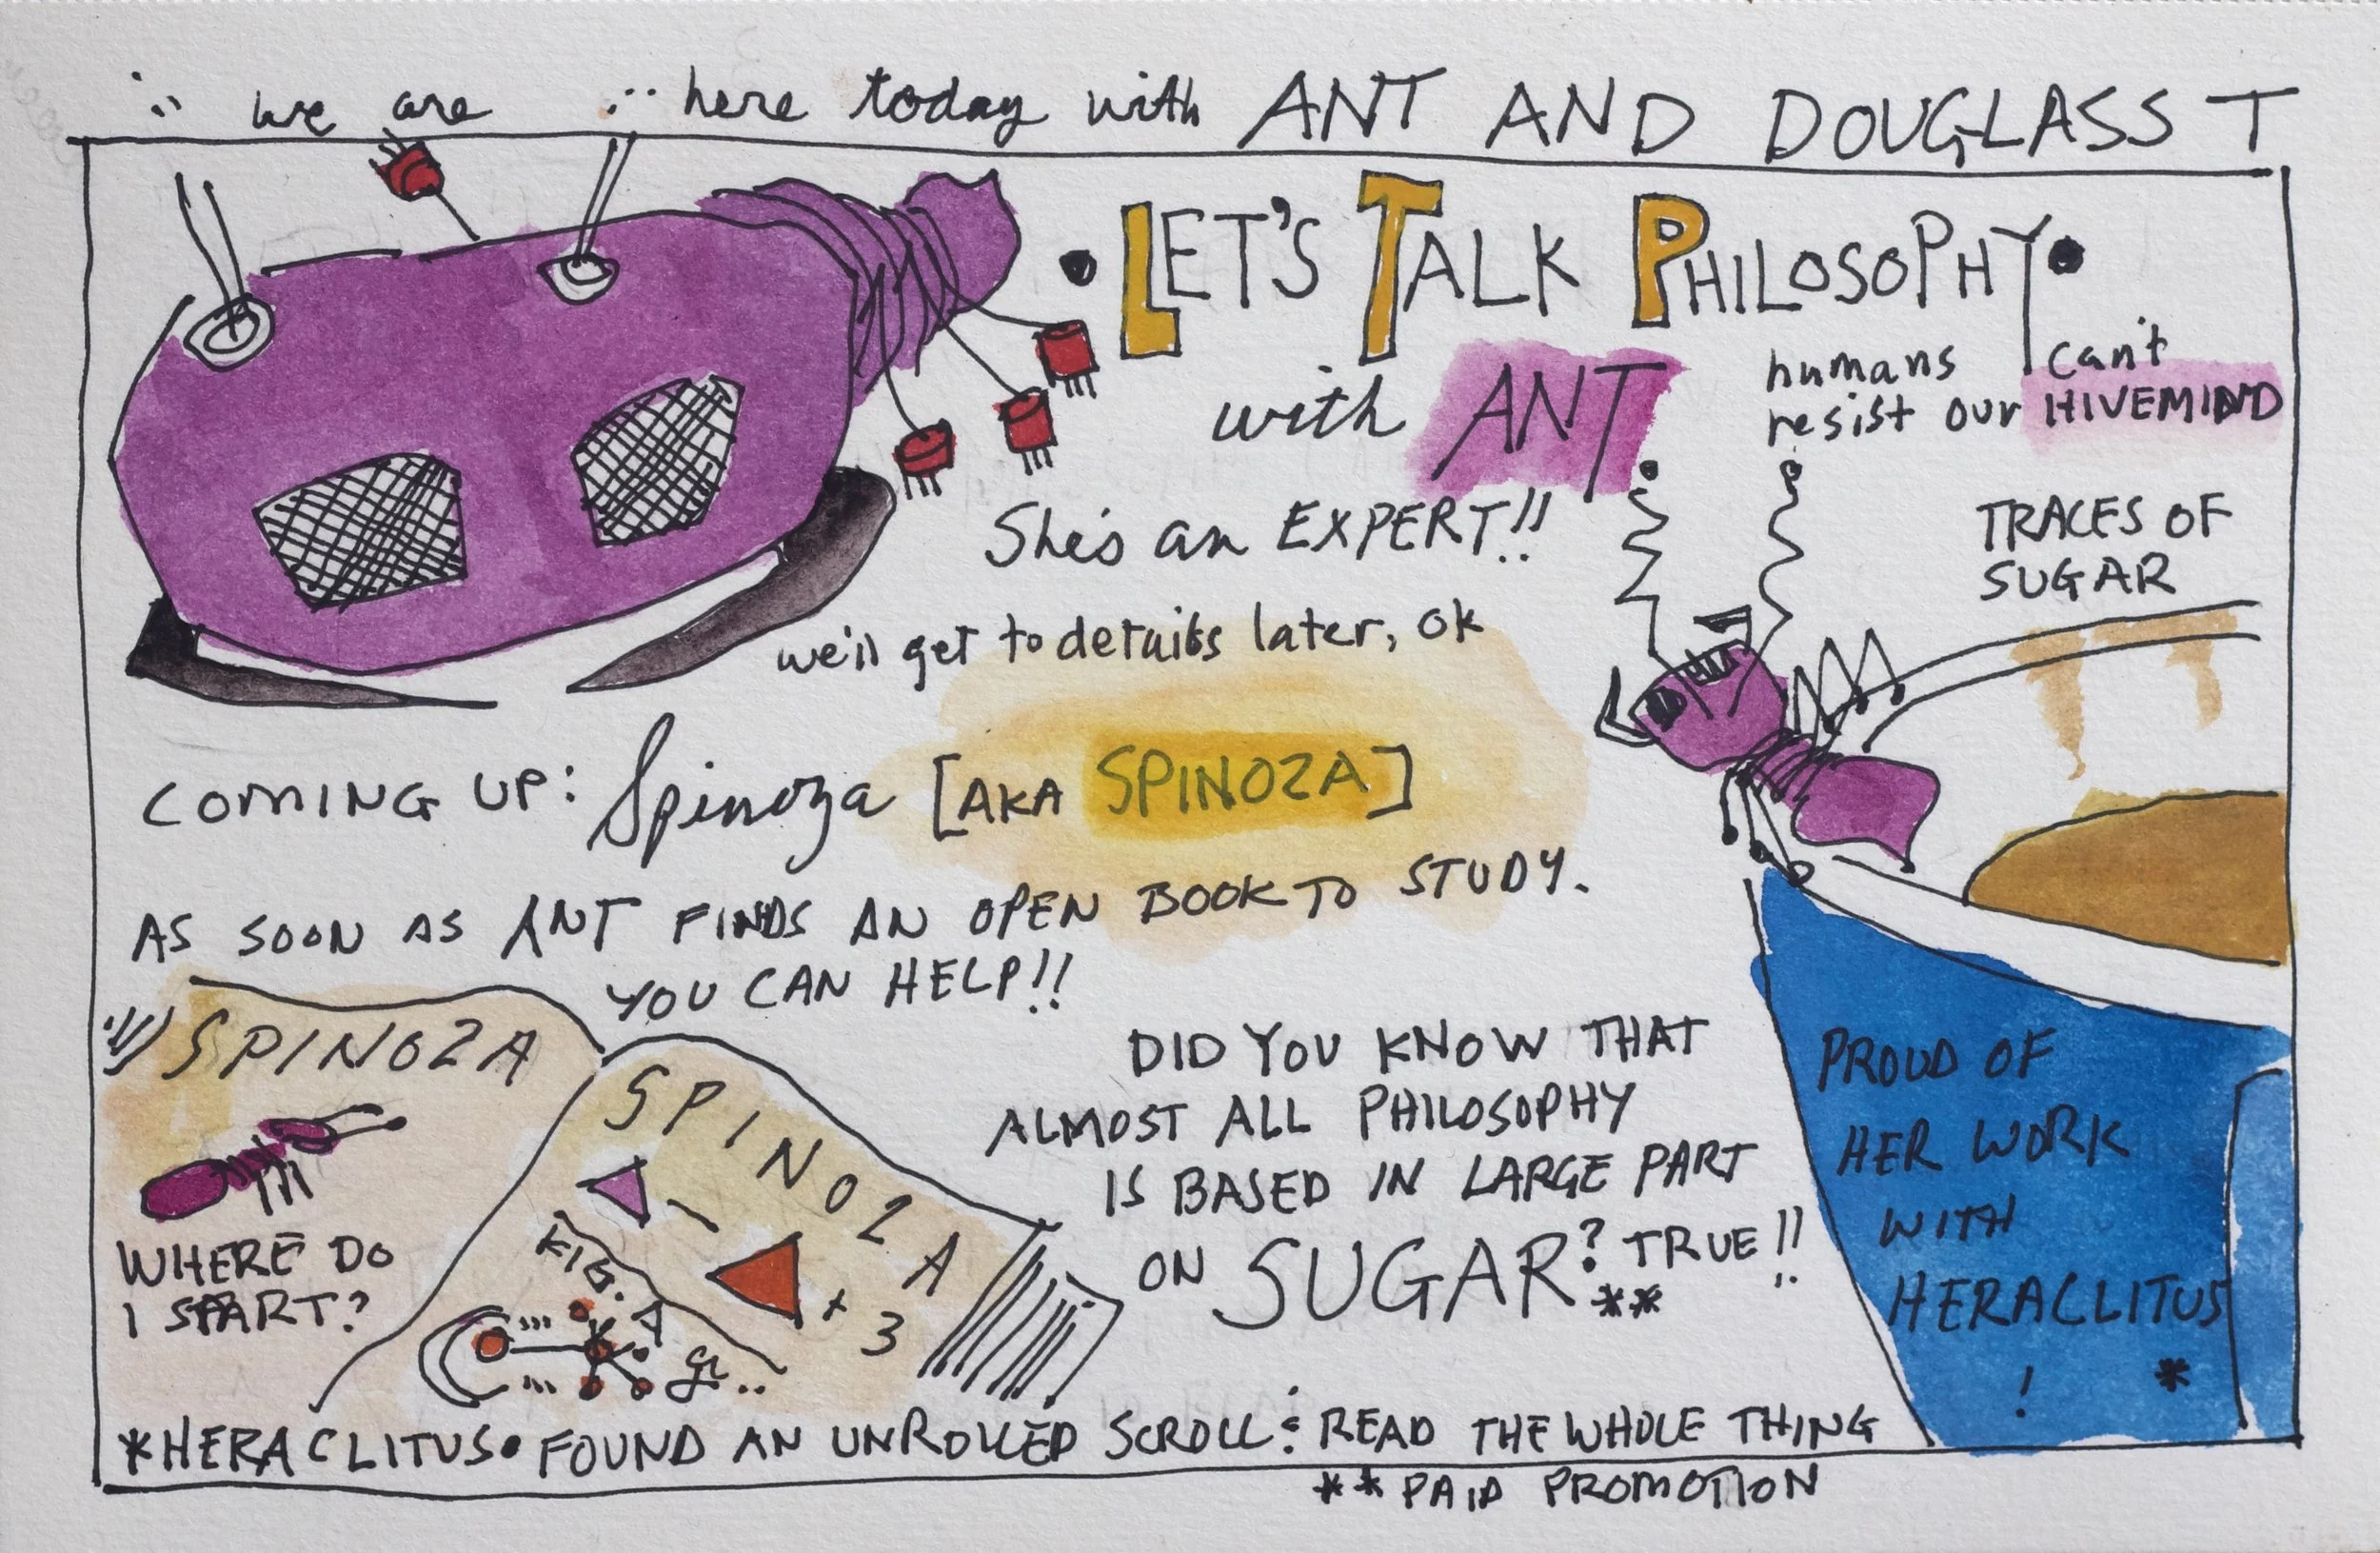 we are here today with ANT AND DOUGLASS T
• LET'S TALK PHILOSOPHY •
with ANT.
humans can't
resist our HIVEMIND
She's an EXPERT!!
we'll get to details later, ok
TRACES OF
SUGAR
COMING UP: Spinoza [AKA SPINOZA]
AS SOON AS ANT FINDS AN OPEN BOOK TO STUDY.
YOU CAN HELP!!
SPINOZA
WHERE DO
I START?
SPINOZA
FIG. A
+ 3
DID YOU KNOW THAT
ALMOST ALL PHILOSOPHY
IS BASED IN LARGE PART
ON SUGAR? TRUE!!
**
PROUD OF
HER WORK
WITH
HERACLITUS
! *
*HERACLITUS• FOUND AN UNROLLED SCROLL: READ THE WHOLE THING
** PAID PROMOTION